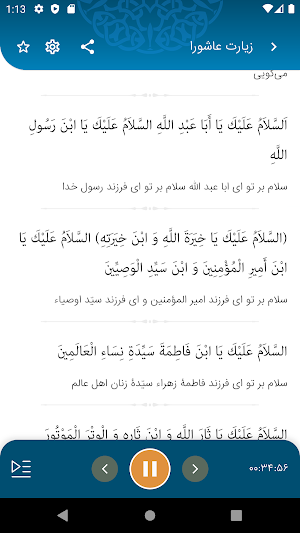 1:13
زیارت عاشورا
می‌گویی
اَلسَّلاَمُ عَلَيْكَ يَا أَبَا عَبْدِ اللَّهِ السَّلاَمُ عَلَيْكَ يَا ابْنَ رَسُولِ
اللَّهِ
سلام بر تو ای ابا عبد الله سلام بر تو ای فرزند رسول خدا
(السَّلاَمُ عَلَيْكَ يَا خِيَرَةَ اللَّهِ وَ ابْنَ خِيَرَتِهِ) السَّلاَمُ عَلَيْكَ يَا
ابْنَ أَمِيرِ الْمُؤْمِنِينَ وَ ابْنَ سَيِّدِ الْوَصِيِّينَ
سلام بر تو ای فرزند امیر المؤمنین و ای فرزند سیّد اوصیاء
السَّلاَمُ عَلَيْكَ يَا ابْنَ فَاطِمَةَ سَيِّدَةِ نِسَاءِ الْعَالَمِينَ
سلام بر تو ای فرزند فاطمهٔ زهراء سیّدهٔ زنان اهل عالم
السَّلاَمُ عَلَيْكَ يَا ثَارَ اللَّهِ وَ ابْنَ ثَارِهِ وَ الْوِتْرَ الْمَوْتُورَ
۰۰:۳۴:۵۶